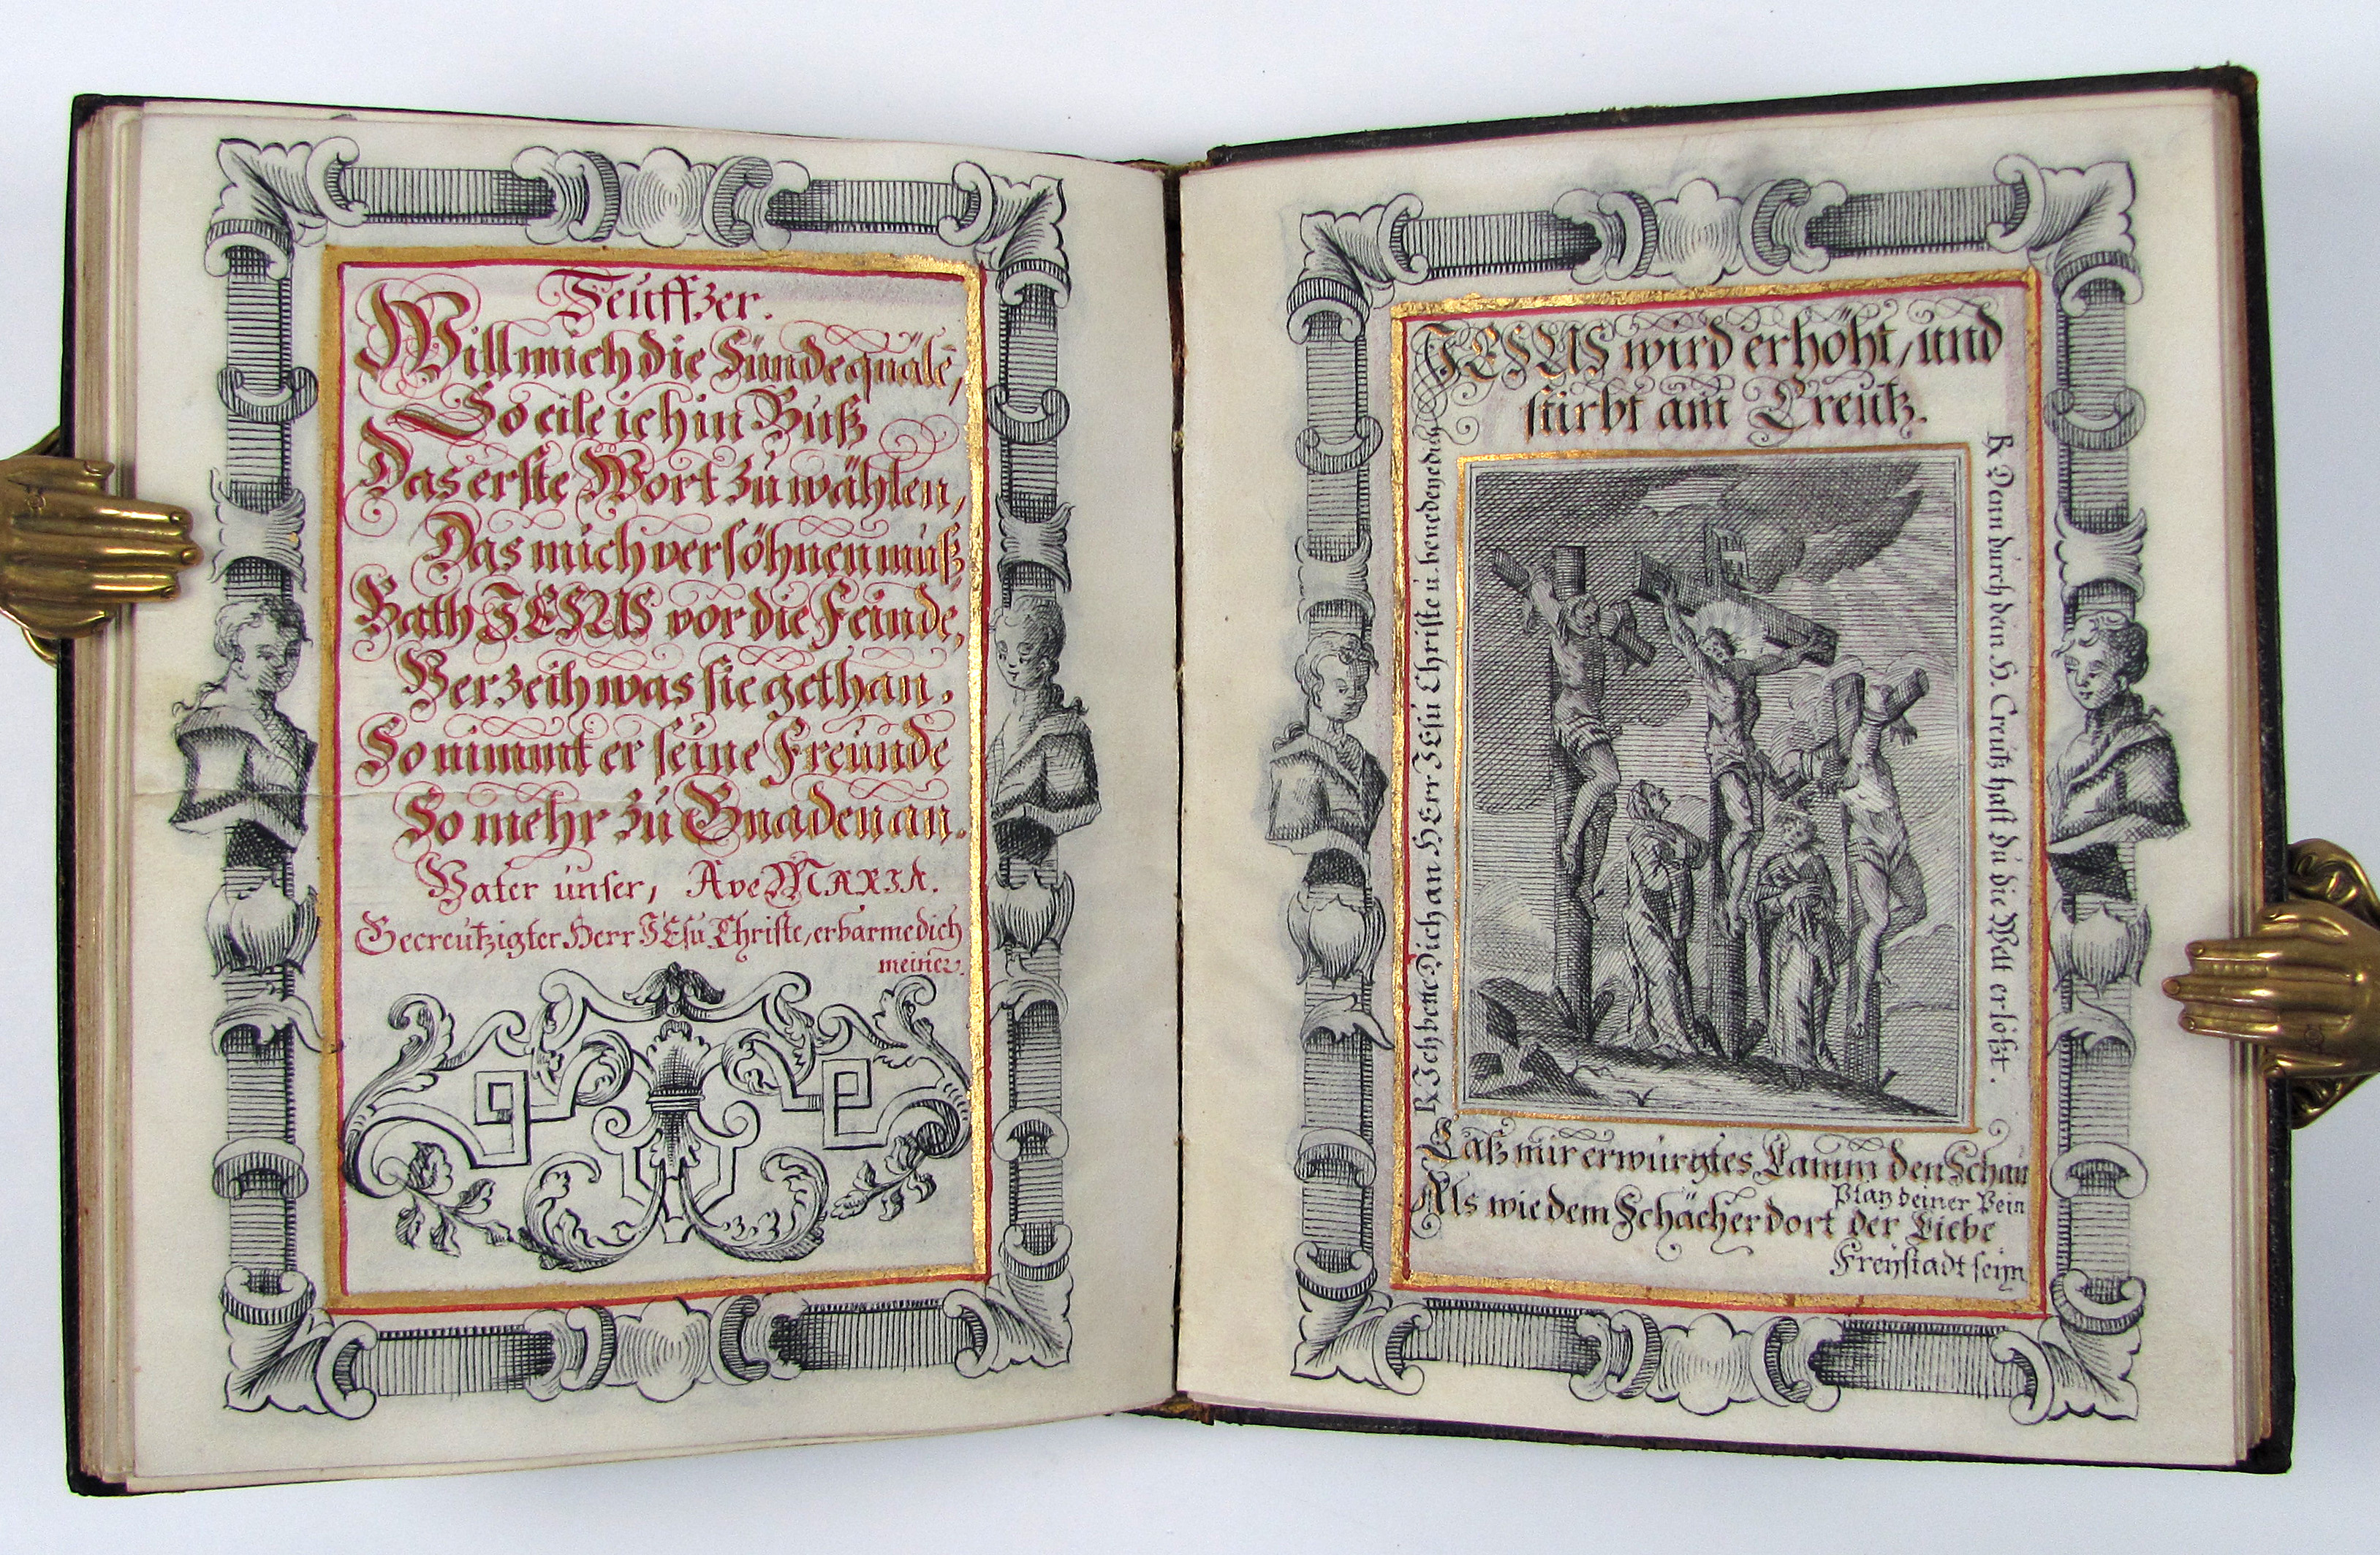 Seuffzer.
Will mich die Sünde quälē,
So eile ich in Buß
Das erste Wort zu wählen,
Das mich versöhnen muß
Bath JESUS vor die Feinde,
Verzeih was sie gethan,
So nimmt er seine Freunde
So mehr zu Gnaden an.
Vater unser, Ave MARIA.
Gecreutzigter Herr JEsu Christe, erbarme dich
meiner.
JESUS wird erhöht, und
stirbt am Creutz.
Ich bene Dich an HErr JEsu Christe u. benedeye dich
R Denn durch dein H. Creutz hast du die Welt erlößt.
Laß mir erwürgtes Lamm den Schau
Platz deiner Pein
Als wie dem Schächer dort der Liebe
Freystadt seyn